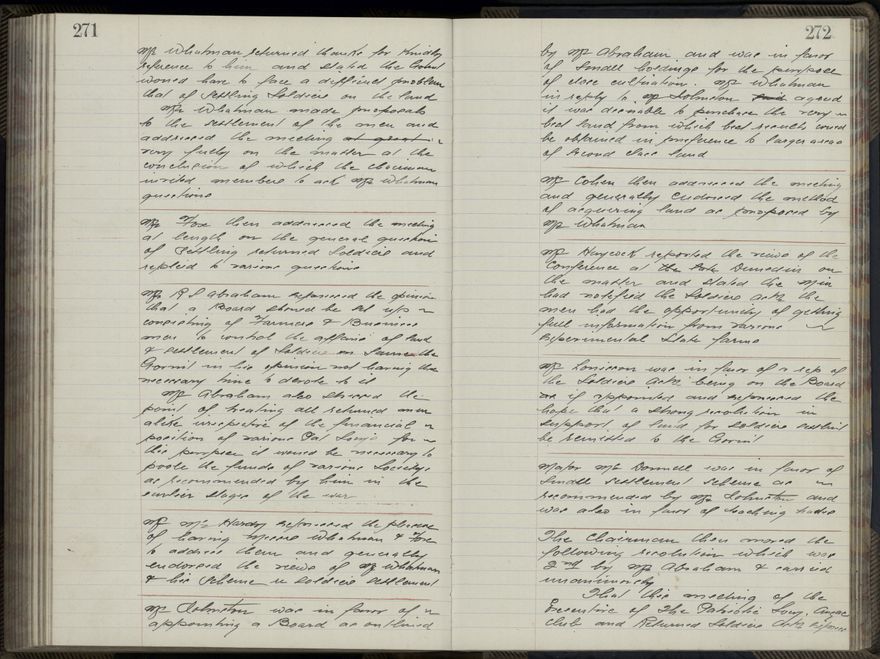 271
Mr Whatman returned thanks for kindly
reference to him and stated the Govmt
would have to face a difficult problem
that of settling Soldiers on the land
Mr Whatman made proposals
to the settlement of the men and
addressed the meeting at great
very fully on the matter at the
conclusion of which the chairman
invited members to ask Mr Whatman
questions
Mr Fox then addressed the meeting
at length on the general question
of settling returned soldiers and
replied to various questions
Mr R S Abraham expressed the opinion
that a Board should be set up
consisting of Farmers & Business
men to control the affairs of land
& settlement of Soldiers on same the
Govmt in his opinion not having the
necessary time to devote to it
Mr Abraham also stressed the
point of treating all returned men
alike irrespective of the financial
position of various Pat Socys for
this purpose it would be necessary to
poole the funds of various Societys
as recommended by him in the
earlier stage of the war
Mr Mc Hardy expressed the pleasure
of having Messrs Whatman & Fox
to address them and generally
endorsed the views of Mr Whatman
& his scheme re soldiers settlement
Mr Johnston was in favor of
appointing a Board as outlined
272
by Mr Abraham and was in favor
of small holdings for the purpose
of close cultivation Mr Whatman
in reply to Mr Johnston agreed
it was desirable to purchase the very
best land from which best results could
be obtained in preference to larger areas
of second class land
Mr Cohen then addressed the meeting
and generally endorsed the method
of acquiring land as proposed by
Mr Whatman
Mr Haycock reported the views of the
Conference at Dunedin on
the matter and stated the Min
had notified the Soldiers Assn the
men had the opportunity of getting
full information from various
experimental State farms
Mr was in favor of a rep of
the Soldiers Assn being on the Board
if appointed and expressed the
hope that a strong resolution in
support of land for soldiers settlmt
be remitted to the Govmt
Major Mc Donnell was in favor of
small settlement scheme as
recommended by Mr Johnston and
was also in favor of teaching trades
The Chairman then moved the
following resolution which was
2nd by Mr Abraham & carried
unanimously
That this meeting of the
Executive of the Patriotic Socy, Anzac
Club and Returned Soldiers Assn